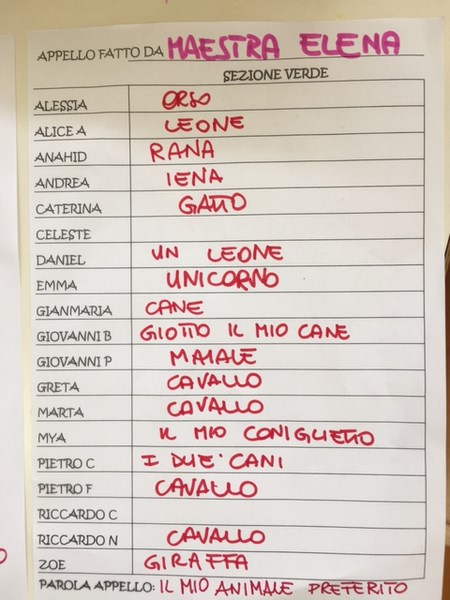 APPELLO FATTO DA MAESTRA ELENA
SEZIONE VERDE
ALESSIA ORSO
ALICE A LEONE
ANAHID RANA
ANDREA IENA
CATERINA GATTO
CELESTE
DANIEL UN LEONE
EMMA UNICORNO
GIANMARIA CANE
GIOVANNI B GIOTTO IL MIO CANE
GIOVANNI P MAIALE
GRETA CAVALLO
MARTA CAVALLO
MYA IL MIO CONIGLIETTO
PIETRO C I DUE' CANI
PIETRO F CAVALLO
RICCARDO C
RICCARDO N CAVALLO
ZOE GIRAFFA
PAROLA APPELLO: IL MIO ANIMALE PREFERITO